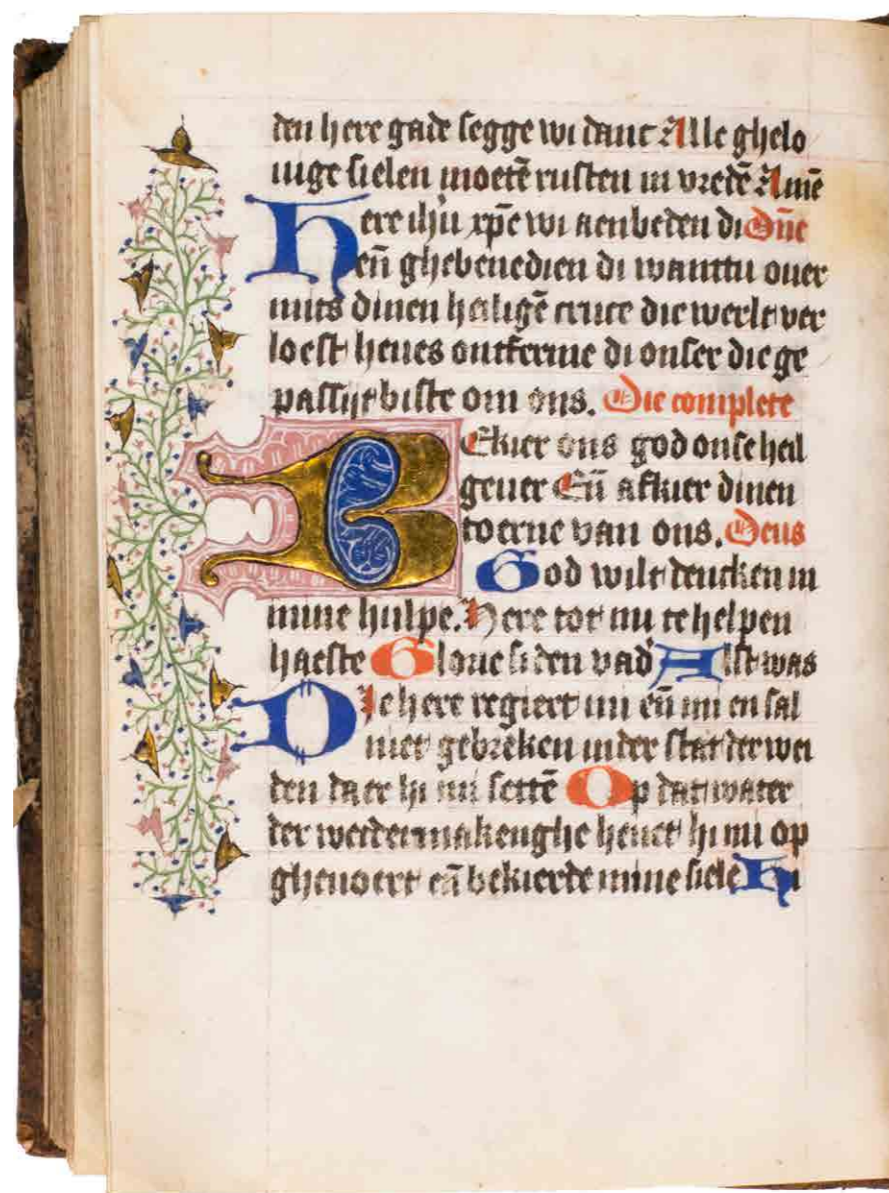 den here gade segge wi danc Alle ghelo
uige sielen moetē rusten in vredē Amē
Here ihū xp̄e wi aenbeden di Dn̄e
eñ ghebenedien di wanttu ouer
mits dinen heiligē cruce die werlt ver
loest heues ontferme di onser die ge
passijt biste om ons. Die complete
BEkier ons god onse heil
geuer Eñ afkier dinen
toerne van ons. Deus
God wilt dencken in
mine hulpe. Here tot mi te helpen
haeste Glorie si den vad Alst was
Die here regiert mi eñ mi en sal
niet gebreken in der stat der wei
den daer hi mi settē Op dat water
der weder makenghe heuet hi mi op
gheuoert eñ bekierde mine siele Hi